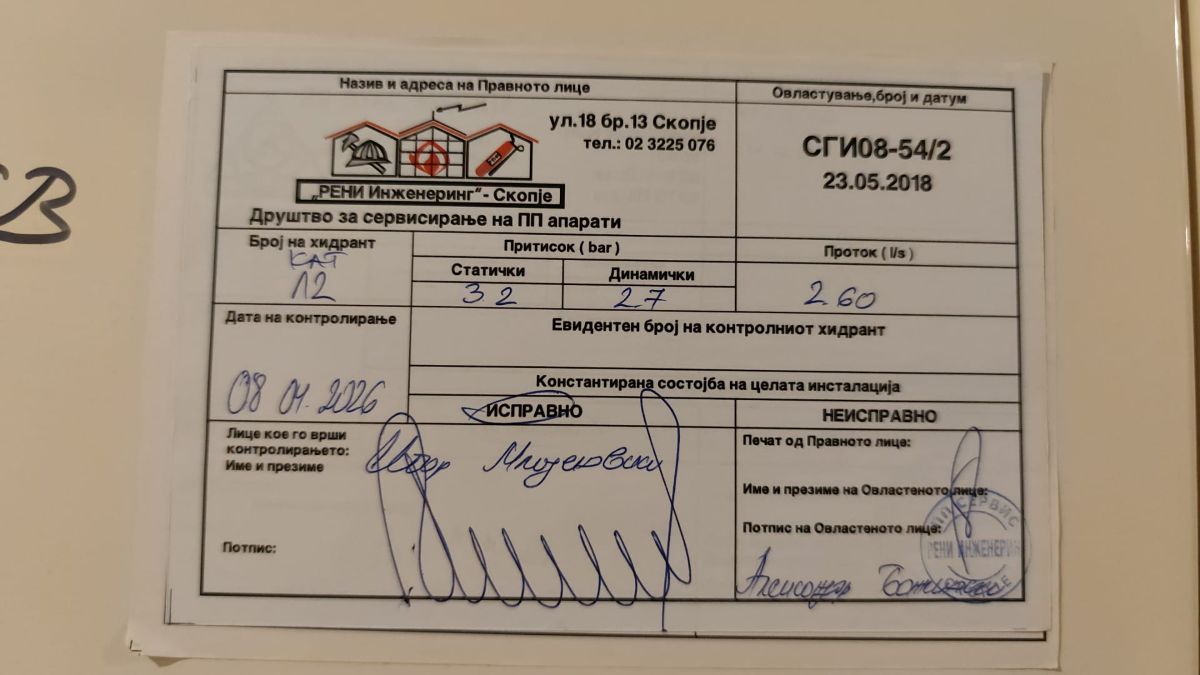 Назив и адреса на Правното лице
Овластување,број и датум
ул.18 бр.13 Скопје
тел.: 02 3225 076
„РЕНИ Инженеринг“- Скопје
Друштво за сервисирање на ПП апарати
СГИ08-54/2
23.05.2018
Број на хидрант
КАТ
12
Притисок ( bar )
Статички
Динамички
3.2
2.7
Проток ( l/s )
2.60
Дата на контролирање
08 01.2026
Евидентен број на контролниот хидрант
Константирана состојба на целата инсталација
ИСПРАВНО
НЕИСПРАВНО
Лице кое го врши
контролирањето:
Име и презиме
Потпис:
Печат од Правното лице:
Име и презиме на Овластеното лице:
Потпис на Овластеното лице:
ПП СЕРВИС
РЕНИ ИНЖЕНЕРИН